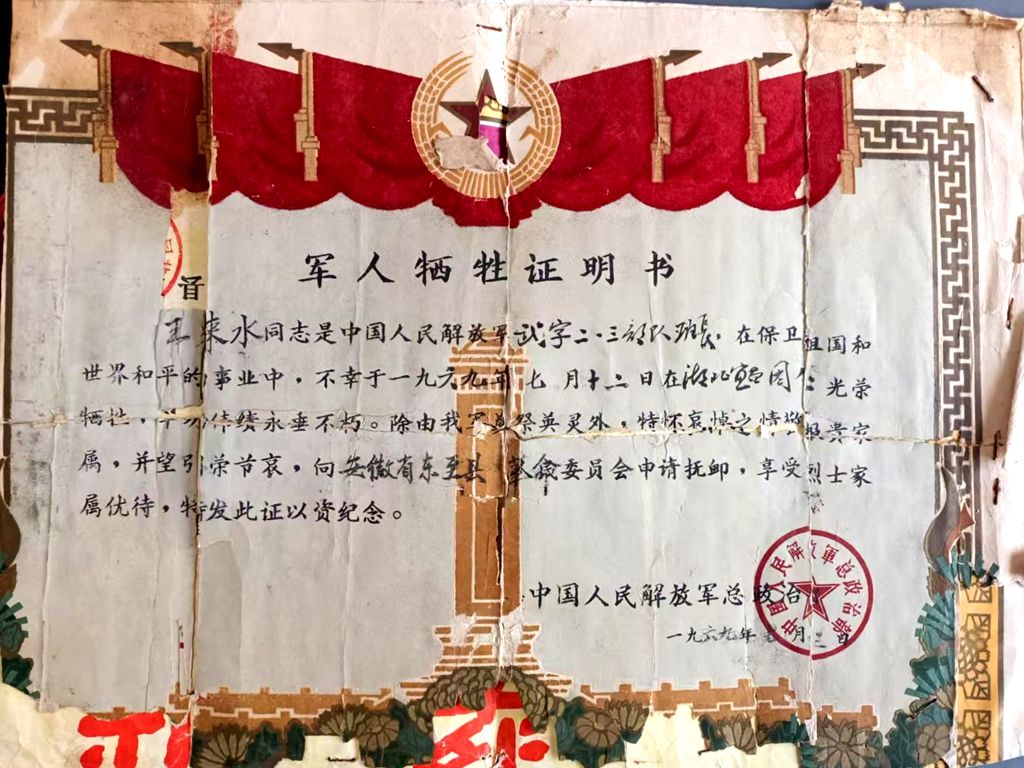 军人牺牲证明书
王来水同志是中国人民解放军武字二·三部队班长 在保卫祖国和
世界和平的事业中，不幸于一九六九年七月十二日在湖北宜昌 光荣
牺牲，永垂不朽。除由我军 祭英灵外，特怀哀悼之情 报贵家
属，并望引荣节哀，向安徽省东至县 委员会申请抚恤，享受烈士家
属优待，特发此证以资纪念。
中国人民解放军总政治
一九六九年 月 日
中国人民解放军总政治部